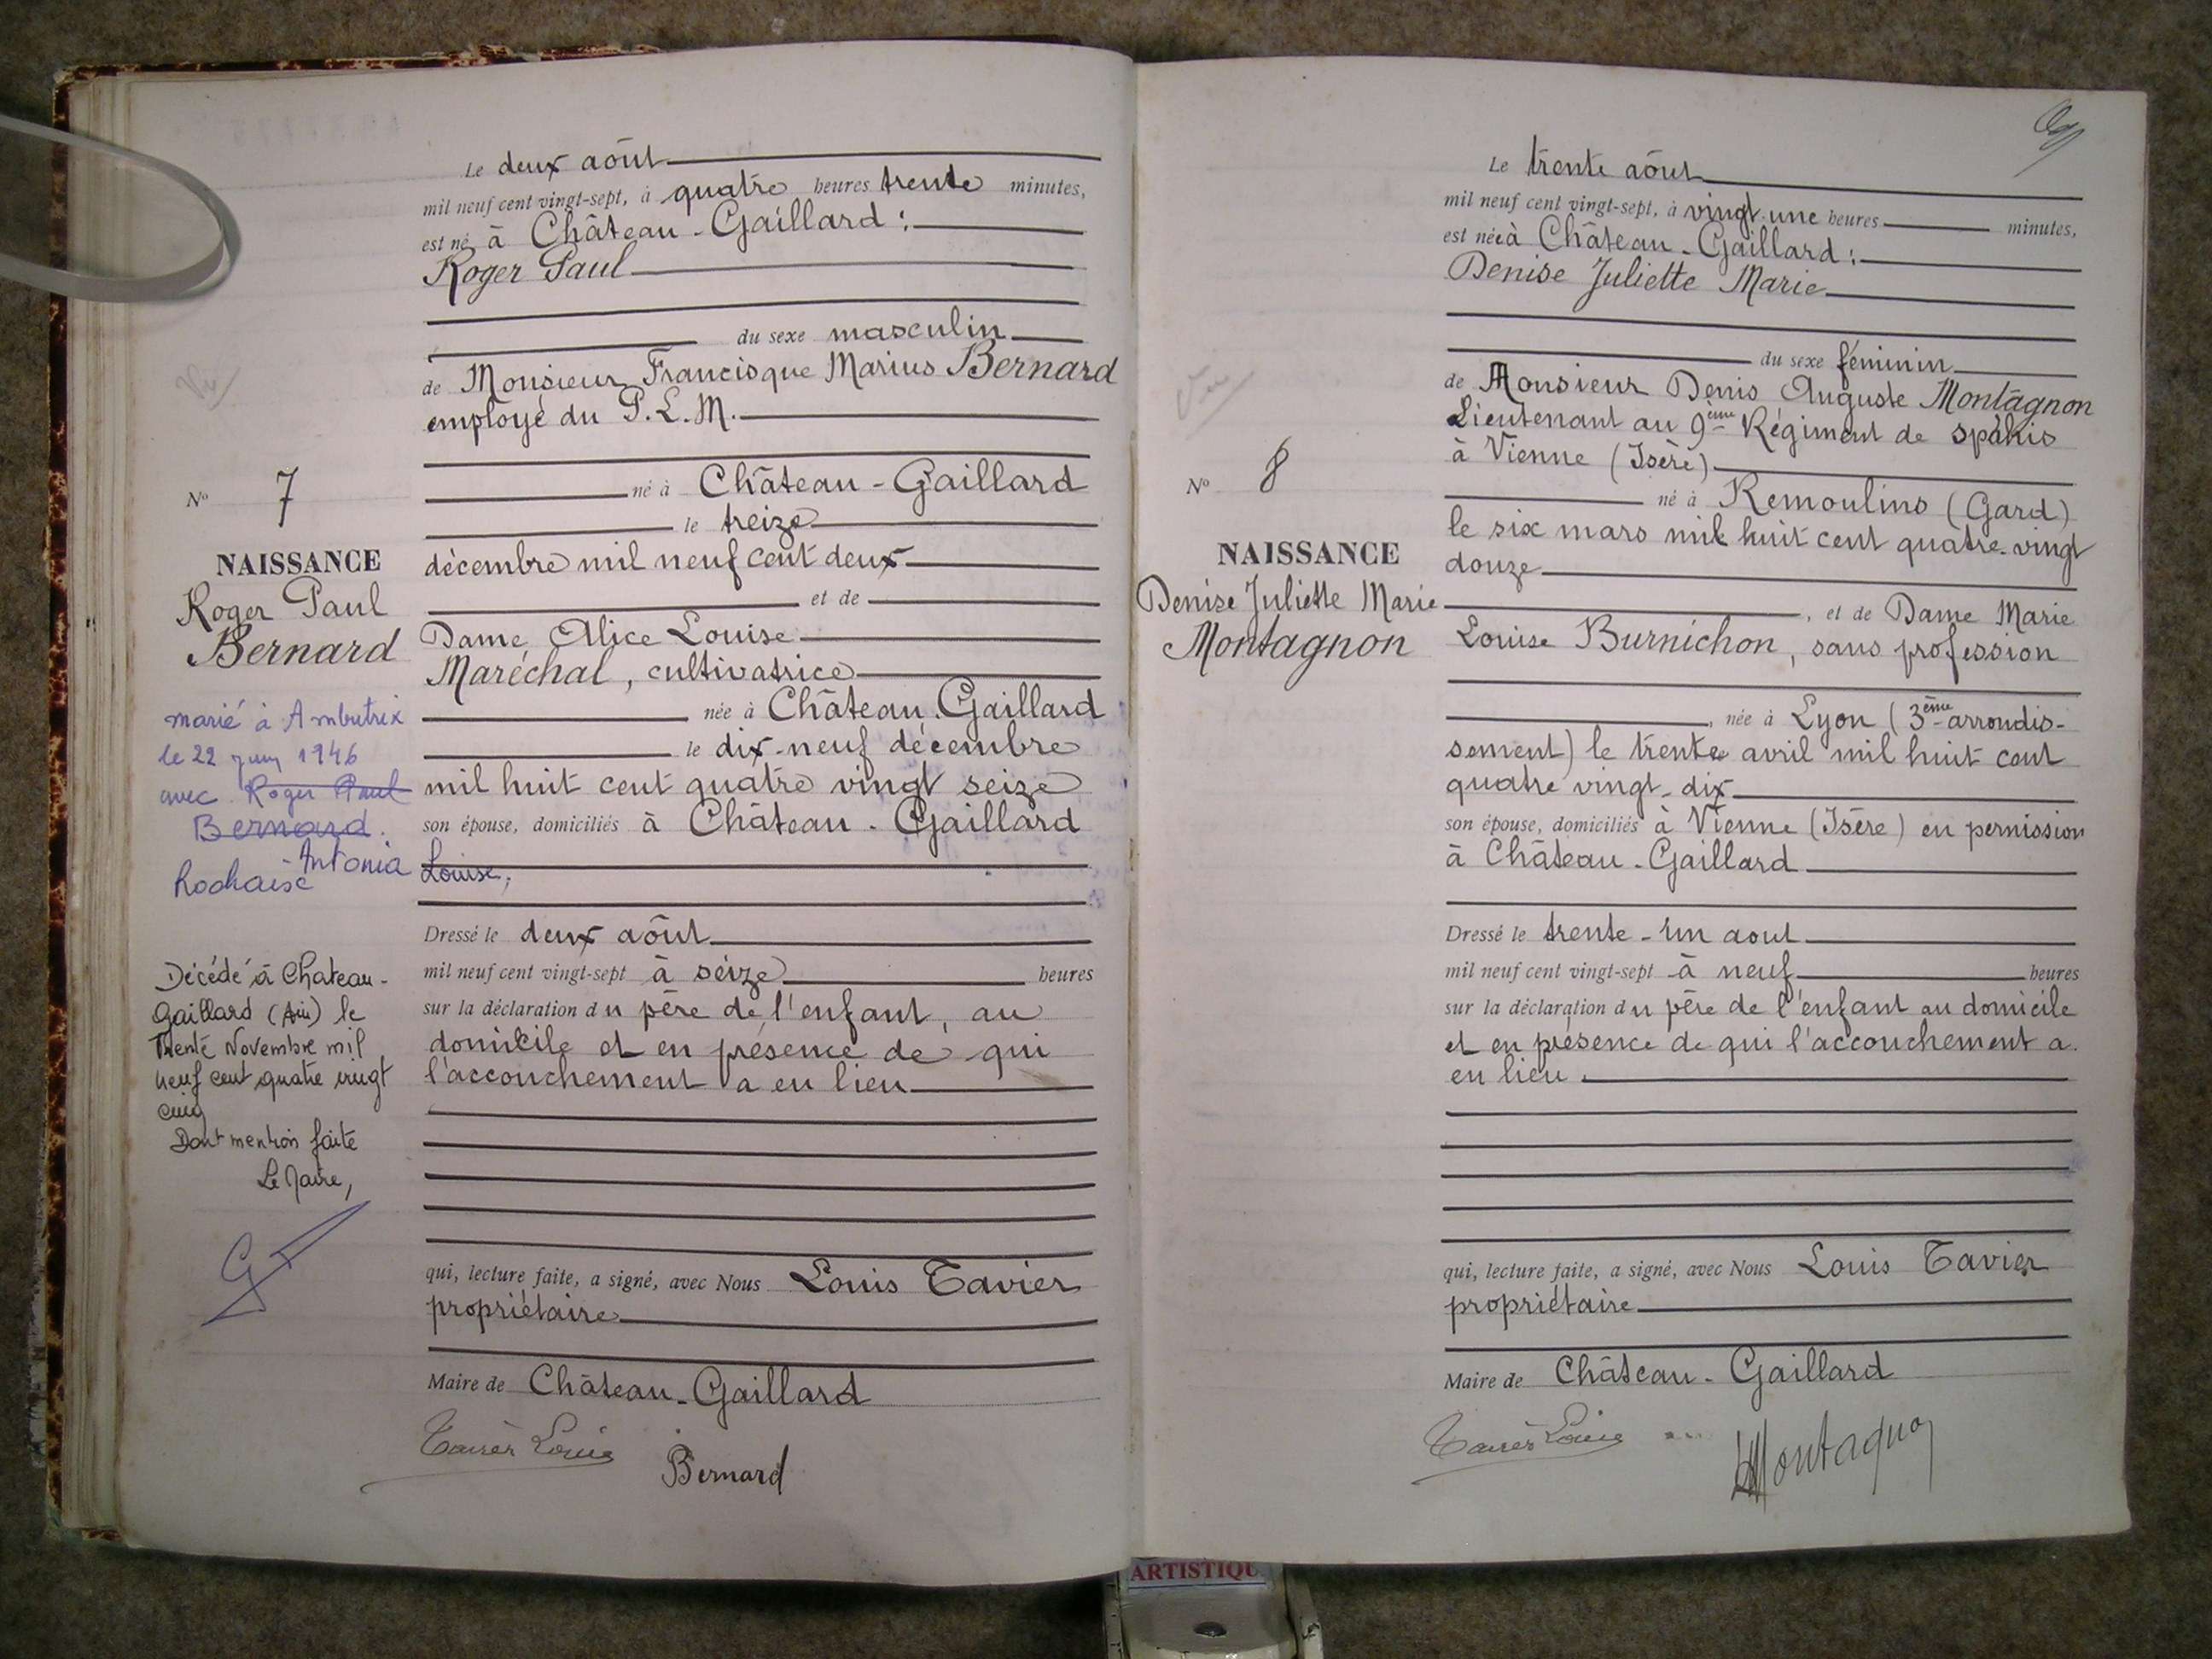 Le deux août
mil neuf cent vingt-sept, à quatre heures trente minutes,
est né à Château-Gaillard :
Roger Paul
du sexe masculin
de Monsieur Francisque Marius Bernard
employé du P.L.M.
né à Château-Gaillard
le treize
décembre mil neuf cent deux
et de
Dame Alice Louise
Maréchal, cultivatrice
née à Château-Gaillard
le dix-neuf décembre
mil huit cent quatre vingt seize
son épouse, domiciliés à Château-Gaillard
Dressé le deux août
mil neuf cent vingt-sept à seize heures
sur la déclaration du père de l'enfant, au
domicile et en présence de qui
l'accouchement a eu lieu
qui, lecture faite, a signé, avec Nous Louis Tavier
propriétaire
Maire de Château-Gaillard
Tavier Louis
Bernard
Vu
N° 7
NAISSANCE
Roger Paul
Bernard
marié à Ambutrix
le 22 juin 1946
avec Roger Paul
Bernard.
Antonia Louise,
Rochaise
Décédé à Chateau-
Gaillard (Ain) le
Trente Novembre mil
neuf cent quatre vingt
cinq
Dont mention faite
Le Maire,
Le trente août
mil neuf cent vingt-sept, à vingt-une heures minutes,
est née à Château-Gaillard :
Denise Juliette Marie
du sexe féminin
de Monsieur Denis Auguste Montagnon
Lieutenant au 9ème Régiment de spahis
à Vienne (Isère)
né à Remoulins (Gard)
le six mars mil huit cent quatre-vingt
douze
, et de Dame Marie
Louise Burnichon, sans profession
, née à Lyon (3ème arrondis-
sement) le trente avril mil huit cent
quatre vingt-dix
son épouse, domiciliés à Vienne (Isère) en permission
à Château-Gaillard
Dressé le trente-un aout
mil neuf cent vingt-sept à neuf heures
sur la déclaration du père de l'enfant au domicile
et en présence de qui l'accouchement a
eu lieu.
qui, lecture faite, a signé, avec Nous Louis Tavier
propriétaire
Maire de Château-Gaillard
Tavier Louis
Montagnon
Vu
N° 8
NAISSANCE
Denise Juliette Marie
Montagnon
ARTISTIQU